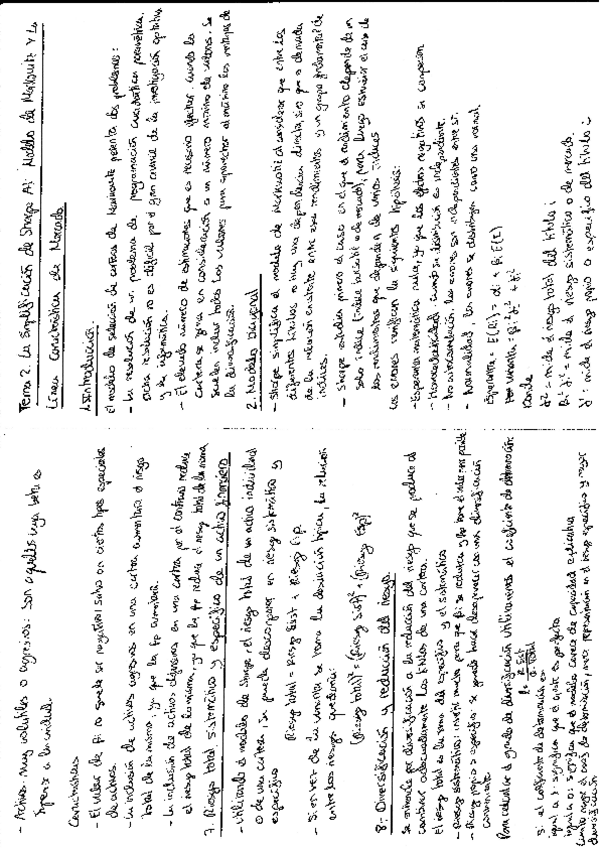 Tema 2. La Simplificación de Sharpe Al Modelo de Markowitz y La
Línea Característica de Mercado
1. Introducción
El modelo de selección de cartera de Markowitz presenta dos problemas:
- La resolución de un problema de programación cuadrática paramétrica.
dicha resolución no es difícil por el gran avance de la investigación operativa
y la informática.
- El elevado número de estimaciones que es necesario efectuar cuando la
cartera se toma en consideración a un número mínimo de valores. Se
suelen incluir todos los valores para aprovechar al máximo las ventajas de
la diversificación.
2. Modelo Diagonal
- Sharpe simplifica el modelo de Markowitz al considerar que entre los
diferentes títulos no hay una dependencia directa, sino que se deriva
de la relación existente entre esos rendimientos y un grupo fundamental de
índices.
- Sharpe estudia primero el caso en el que el rendimiento depende de un
solo índice (índice bursátil o de mercado), para luego estudiar el caso de
los rendimientos que dependen de varios índices
Los errores verifican las siguientes hipótesis:
- Esperanza matemática nula, ya que los efectos negativos se compensan
- Homocedasticidad, cuando su distribución es independiente.
- No autocorrelación, los errores son independientes entre sí.
- Normalidad, los errores se distribuyen como una normal.
Esperanza = E(Ri) = αi + βi E(I)
Donde
= mide el riesgo total del título i
= mide el riesgo sistemático o de mercado.
= mide el riesgo propio o específico del título i
- Activos muy volátiles o agresivos: Son aquellos cuya beta es
superior a la unidad.
Características
- El valor de βi no suele ser negativo salvo en ciertos tipos especiales
de activos.
- La inclusión de activos agresivos en una cartera aumentará el riesgo
total de la misma, ya que la βp aumentará.
- La inclusión de activos defensivos en una cartera por el contrario reduce
el riesgo total de la misma, ya que la βp reduce el riesgo total de la misma
7. Riesgo total sistemático y específico de un activo financiero
- Utilizando el modelo de Sharpe, el riesgo total de un activo individual
o de una cartera, se puede descomponer en riesgo sistemático y
específico
Riesgo total = Riesgo Sist + Riesgo Esp.
- Si en vez de la varianza se toma la desviación típica, la relación
entre los riesgos quedaría:
(Riesgo total)² = (Riesgo Sist)² + (Riesgo Esp)²
8- Diversificación y reducción del riesgo.
Se entiende por diversificación a la reducción del riesgo que se produce al
combinar adecuadamente los títulos de una cartera.
El riesgo total es la suma del específico y el sistemático
- Riesgo propio o específico se puede hacer desaparecer con una diversificación
conveniente
Para calcular el grado de diversificación utilizaremos el coeficiente de determinación
Si el coeficiente de determinación es:
igual a 1: significa que el ajuste es perfecto
igual a 0: significa que el modelo carece de capacidad explicativa
diversificación